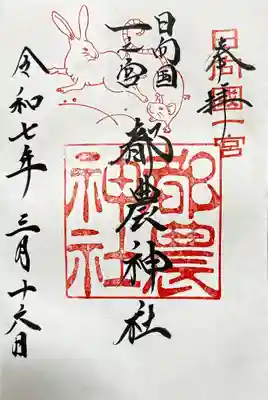 奉拝
日向國一宮
日向国
一之宮
都農神社
都農
神社
令和七年三月十六日